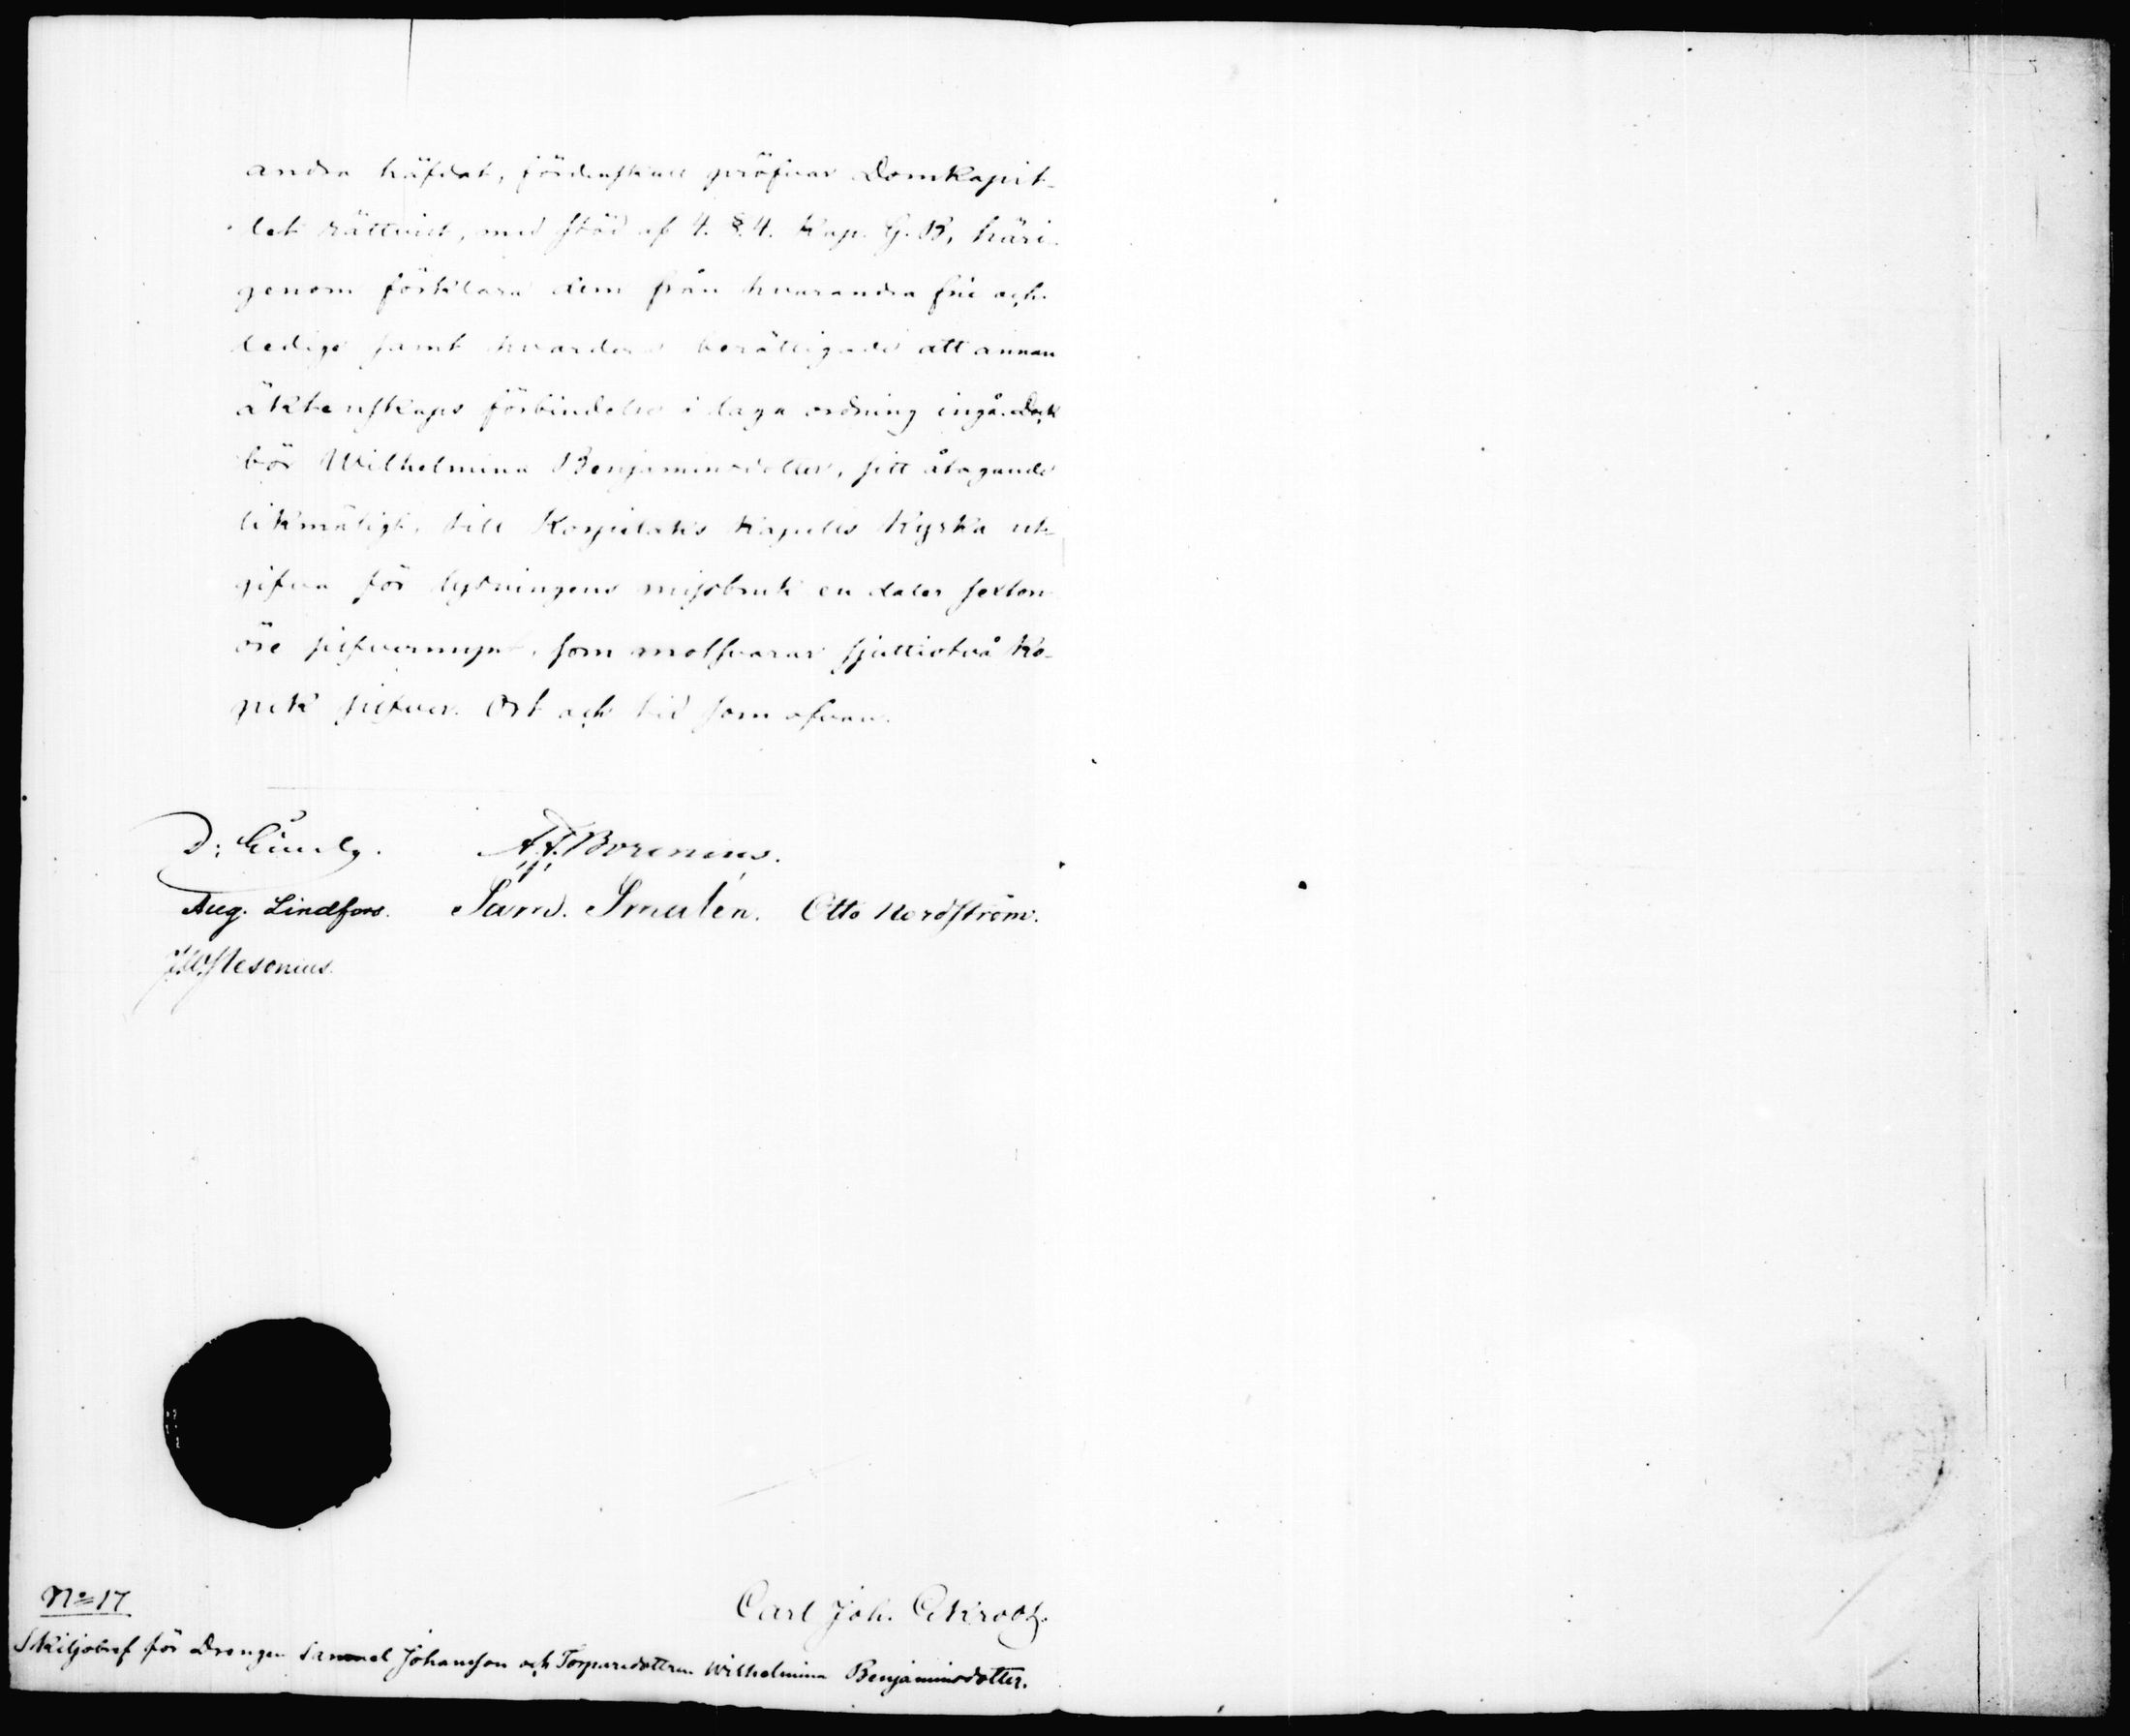 andra häfdat, fördenskull pröfvar Domkapit-
let rättvist, med stöd af 4. §. 4. Kap. G. B, häri-
genom förklara dem från hvarandra frie och
ledige samt hvardera berättigade att annan
äktenskaps förbindelse i laga ordning ingå. Dock
bör Wilhelmina Benjaminsdotter, sitt åtagande
likmätigt, till Korpilaks Kapells Kyrka ut-
gifva för lysningens missbruk en daler sexton
öre silfvermynt, som motsvarar sjuttiotvå Ko-
pek silfver. Ort och tid som ofvan.
A. J. Borenius.
Aug. Lindfors. Sam. Smalén. Otto Nordström.
Carl Joh.
No 17
Skiljobref för Drengen Samuel Johansson och Torparedottren Wilhelmina Benjaminsdotter.